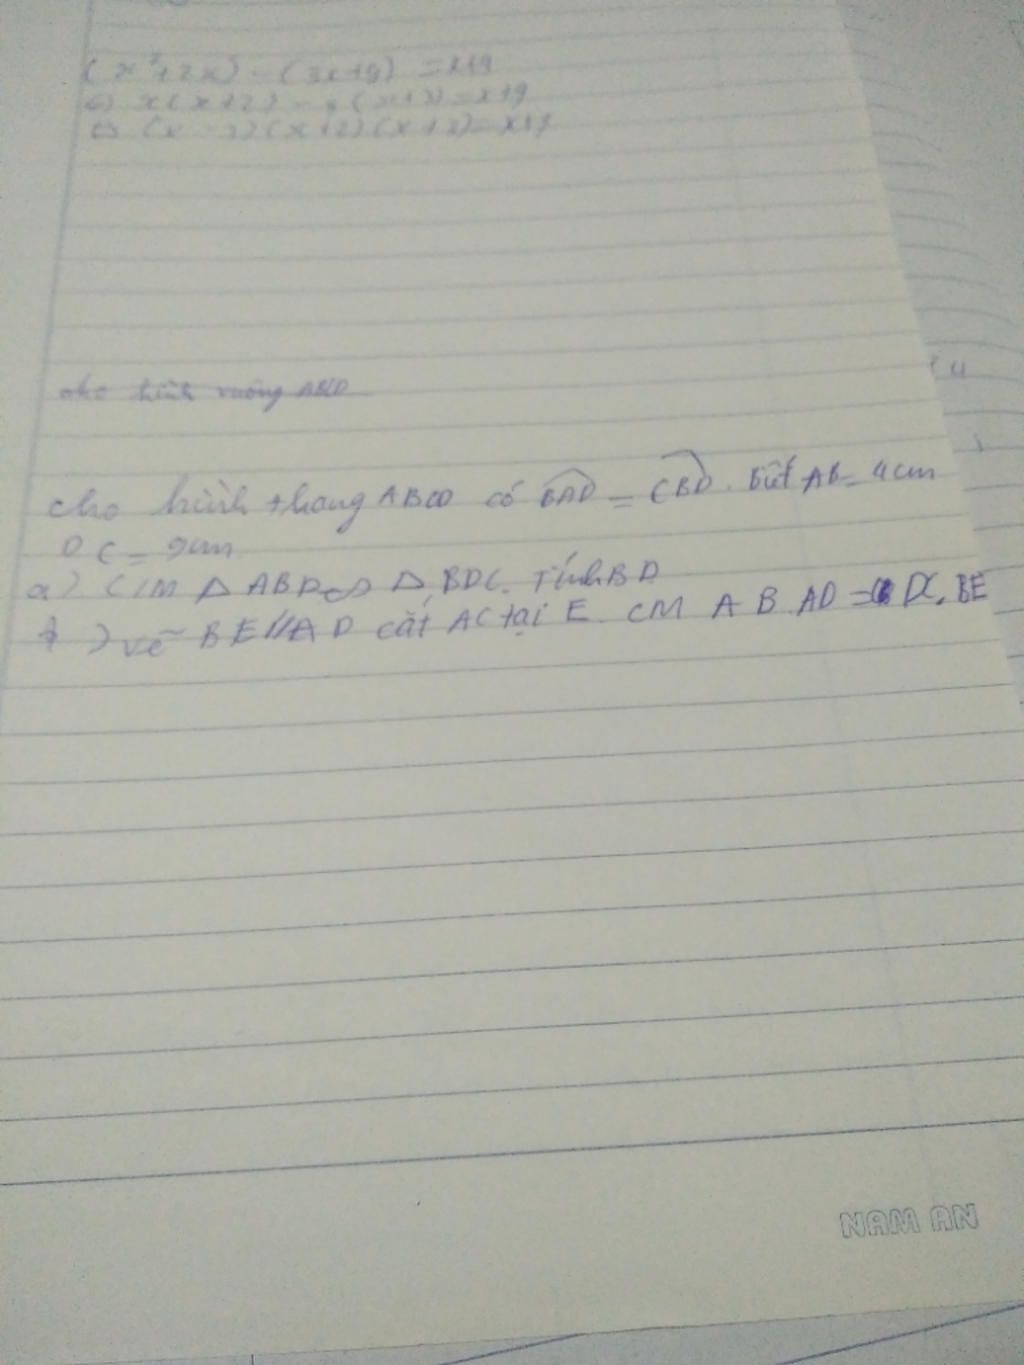 (x²+2x) - (3x+9) = x+9
⇔ x(x+2) - 3(x+3) = x+9
⇔ (x - 3)(x+2)(x+3) = x+9
cho hình vuông ABCD
cho hình thang ABCD có BAD = CBD. Biết AB = 4cm
DC = 9cm
a) C/M Δ ABD ∽ Δ BDC. Tính BD
) vẽ BE//AD cắt AC tại E. CM AB.AD = DC.BE
NAM AN